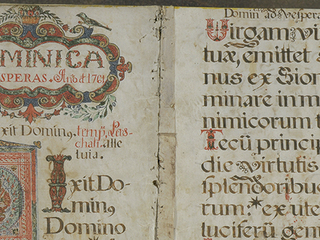 MINICA
SPERAS. Año d 1761
ixit Domin9 temp. Pas
chali. alle
luia.
IxitDo-
min9
Domino
Domin. ad Vespera
Virgam vi
tuæ, emittet
nus ex Sion
minare in m
nimicorum t
Tecũ princip
die virtutis
splendoribus
rum * ex ute
luciferũ gem